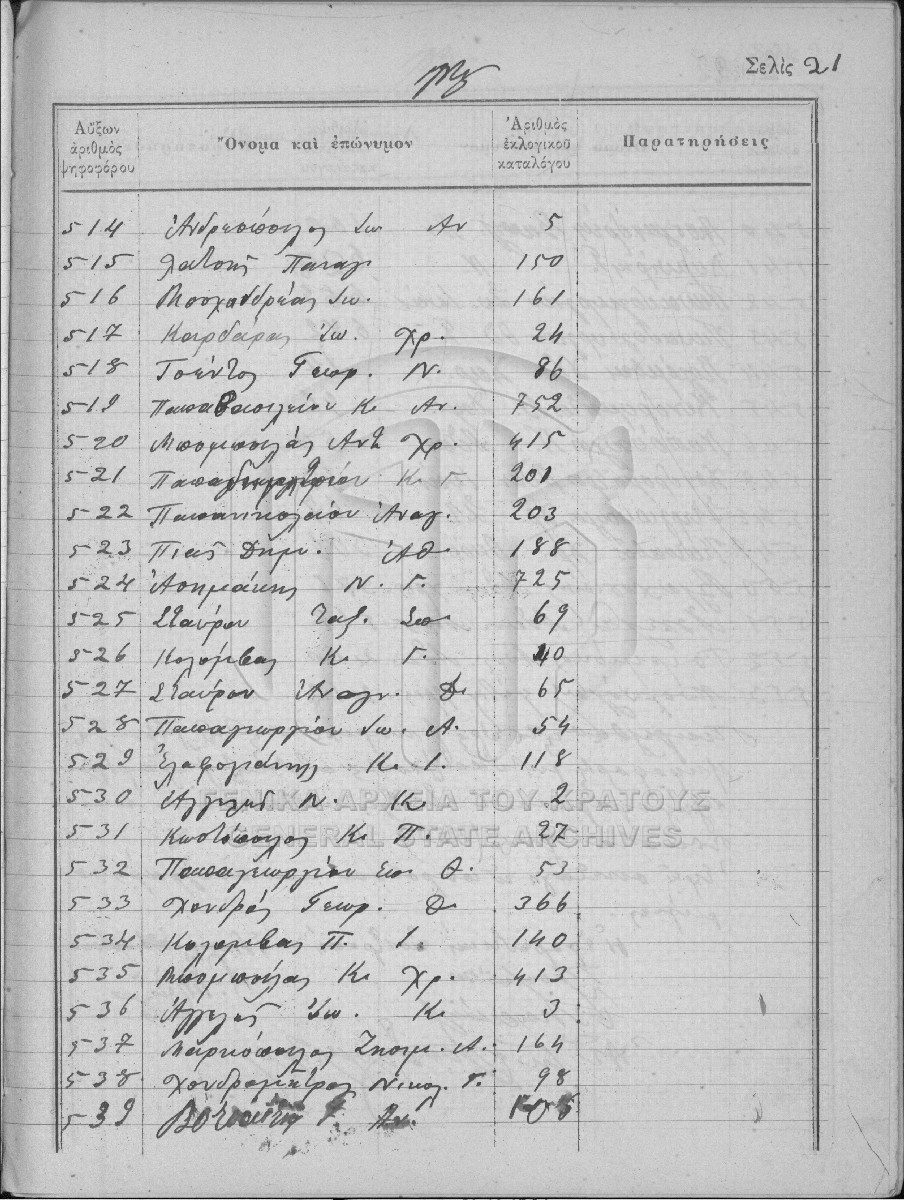 Σελὶς 21
Αὔξων ἀριθμὸς ψηφοφόρου Ὄνομα καὶ ἐπώνυμον Ἀριθμὸς ἐκλογικοῦ καταλόγου Παρατηρήσεις
514 Ἀνδρεόπουλος Ἰω Αν 5
515 Λατσης Παναγ 150
516 Μοσχανδρέας Ἰω. 161
517 Κουρδάρας Ἰω. Χρ. 24
518 Τσέντος Γεωρ. Ν. 86
519 Παπαβασιλείου Κ. Αν. 752
520 Μπομποτλάς Αντ Χρ. 415
521 Κ. Γ. 201
522 Παπανικολάου Ἀναγ. 203
523 Πιας Δημ. Ἀθ. 188
524 Ἀσημάκης Ν. Γ. 725
525 Σταύρου Ταξ. Σπ 69
526 Κολομβας Κ. Γ. 40
527 Σταύρου Ἀναγν. Δ. 65
528 Παπαγεωργίου Ἰω. Α. 54
529 Ἐλαφογιάννης Κ. Ι. 118
530 Ἀγγελής Ν. Κ 2
531 Κωστόπουλος Κ. Π. 27
532 Παπαγεωργίου Σπ Θ. 53
533 Χονδρός Γεωρ. Δ. 366
534 Κολομβας Π. Ι. 140
535 Κ. Χρ. 413
536 Ἀγγελής Ἰω. Κ. 3
537 Μαρκόπουλος Α. 164
538 Χονδρομήτρος Νικολ. Γ. 98
539 Αν. 105
ΓΕΝΙΚΑ ΑΡΧΕΙΑ ΤΟΥ ΚΡΑΤΟΥΣ
GENERAL STATE ARCHIVES